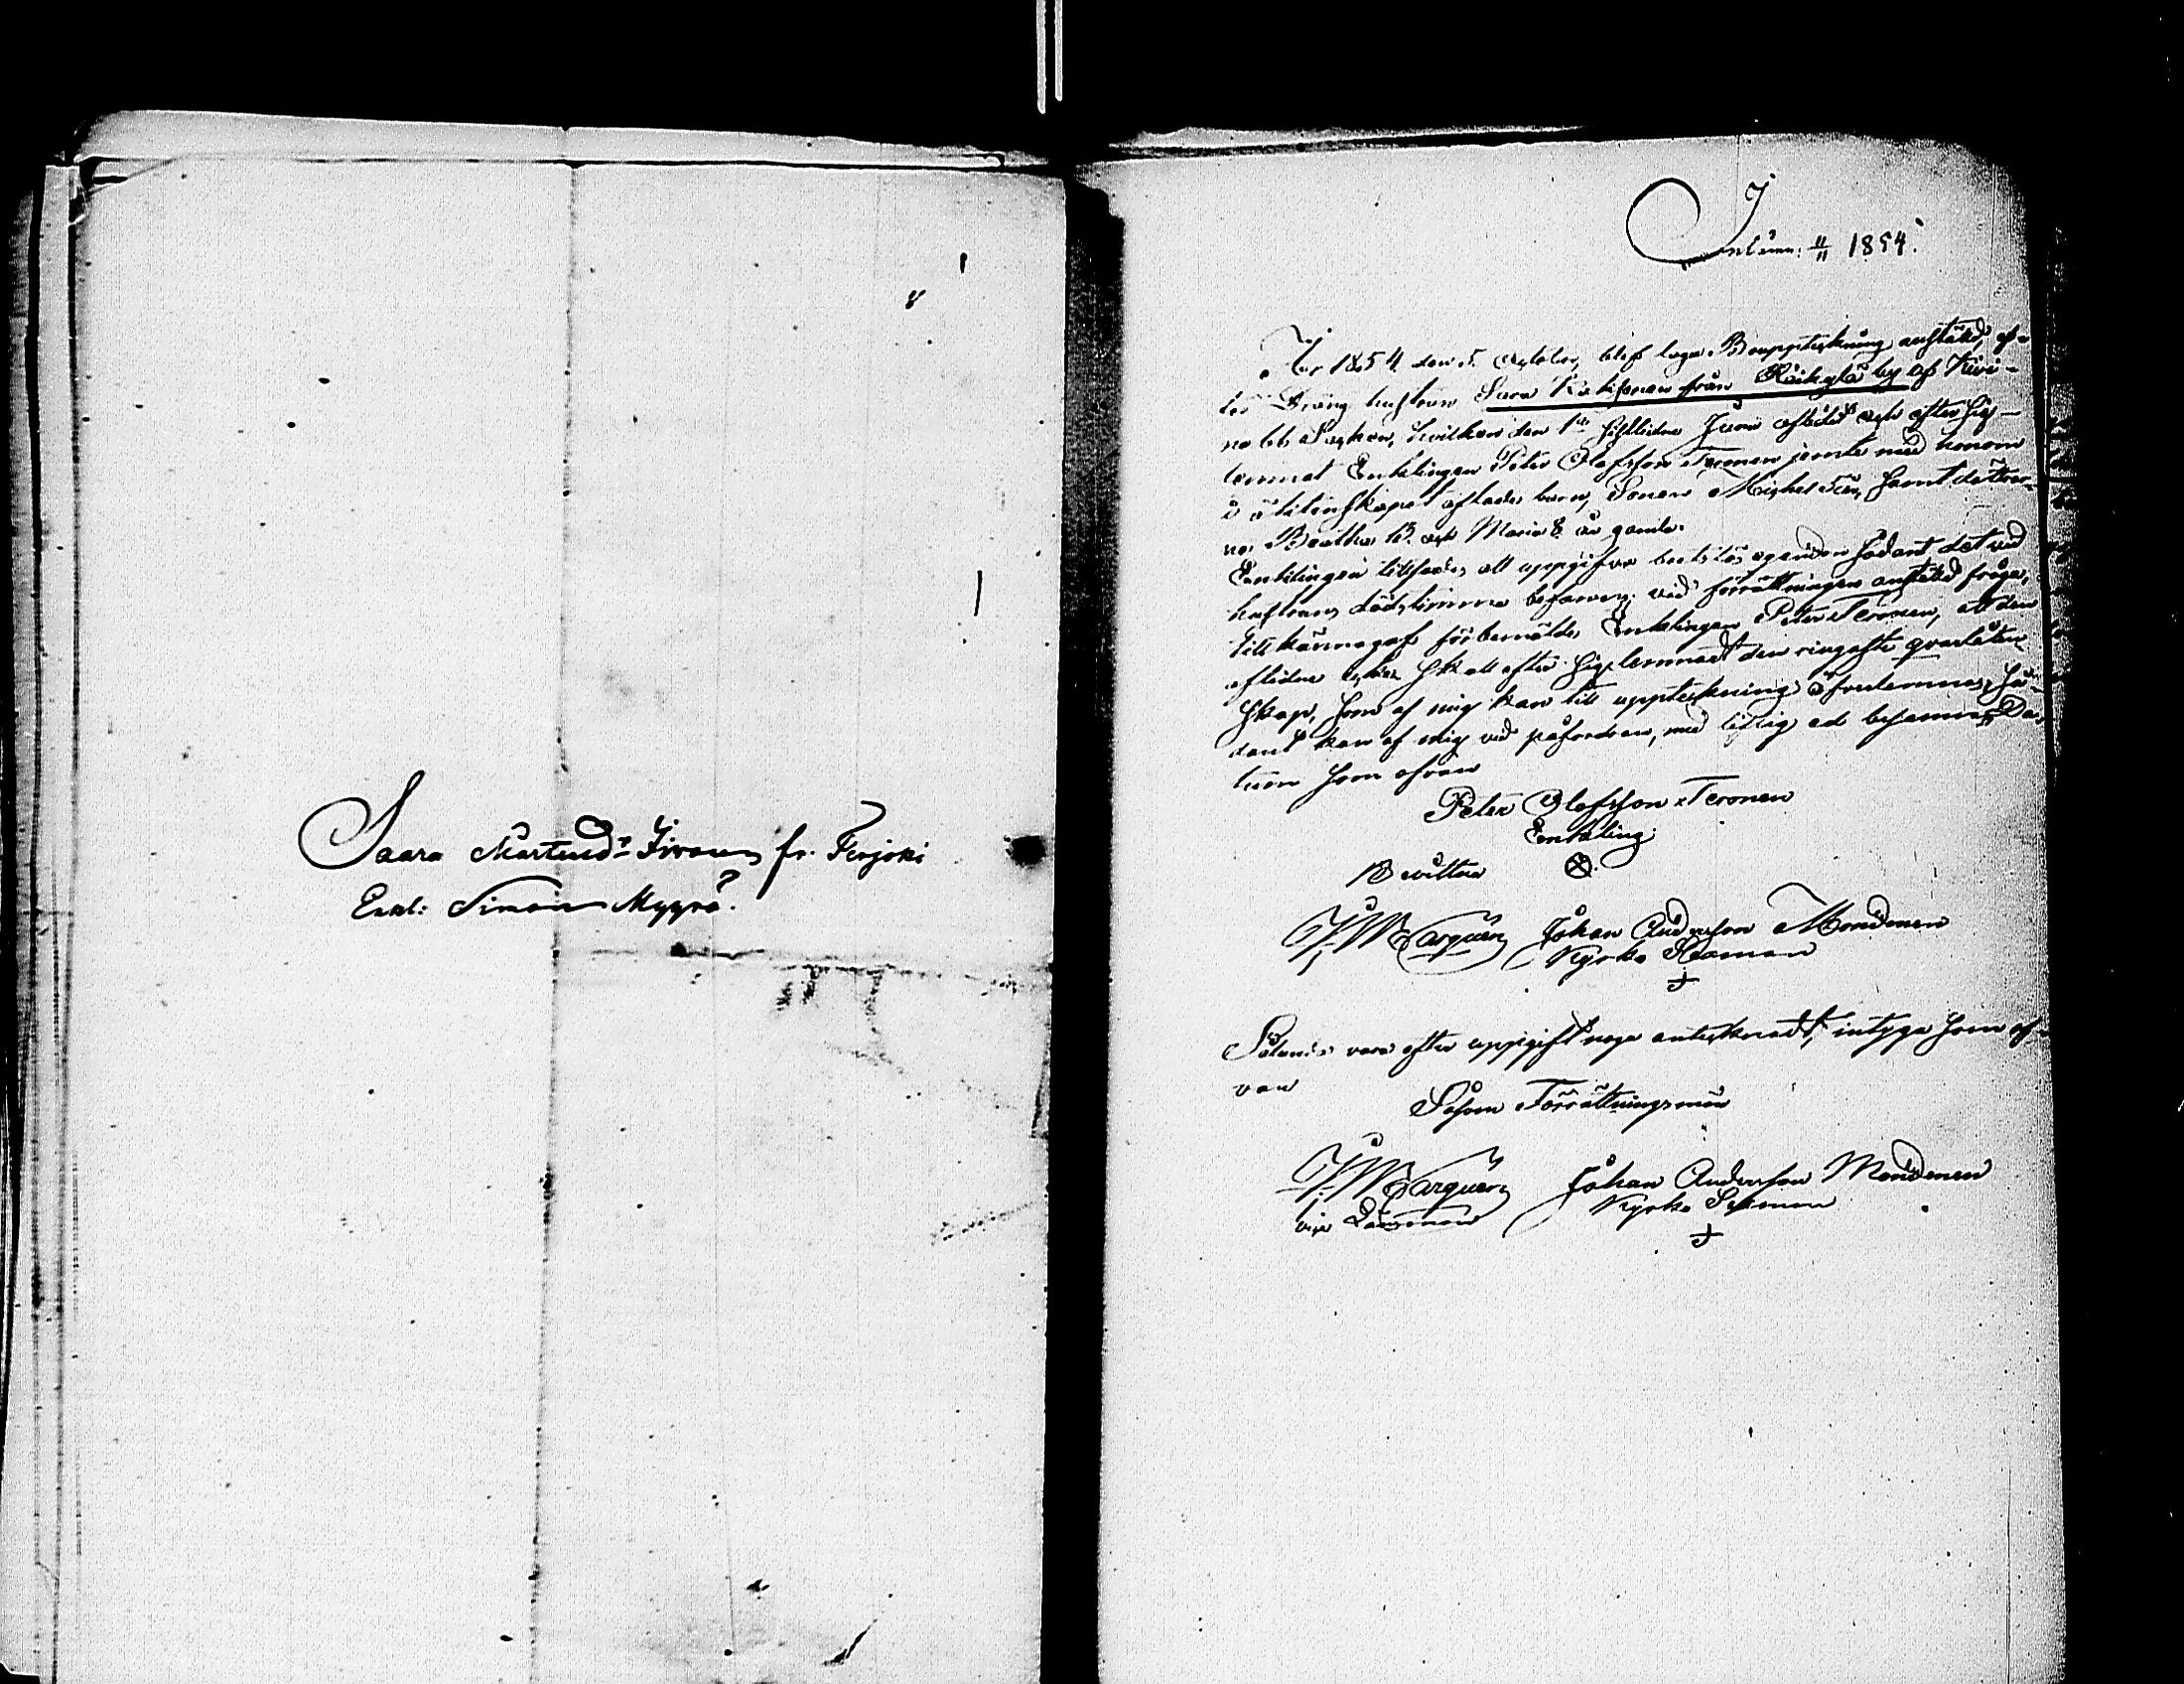 Saara Mårtensd:r Iivonen fr. Terjoki
Enkl: Simon Myyrä.
J
Inlemn: 11/11 1854.
År 1854 den 5 October, blef laga Bouppteckning anstäld, ef-
ter Dräng hustrun Sara Kokkonen från Räikylä by af Kivi-
nebb Sochen, hvilken den 1sta sistledne Juni aflidit och efter sig
lemnat Enklingen Peter Olofsson Teronen jemte med honom
i äktenskapet aflade barn, Sonen Michel samt döttrar-
na Beatha 13. och Maria 8 år gamla.
Enklingen tillsades att uppgifva boets egendom sådant det vid
hustruns dödstimma befanns. vid förrättningen anstäld fråga,
tillkännagaf förbemälde Enklingen Peter Teronen, att den
aflidna icke skall efter sig lemnadt den ringaste qvarlåten-
skap, som af mig kan till uppteckning framlemnas, så-
dant kan af mig vid påfordran, med liflig ed besannas, Da-
tum som ofvan
Peter Olofsson Teronen
Enkling.
Bevittna
Johan Andersson Mondonen
Kyrko
Sålunda vara efter uppgift noga antecknadt, intyga som of-
van
Såsom Förrättningsmän
Johan Andersson Mondonen
vice Länsman Kyrko